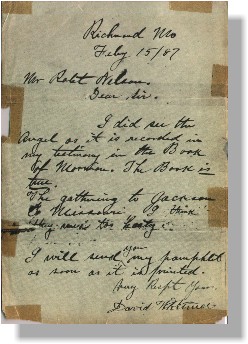 Richmond Mo
Feby 15/87
Mr Robt Nelson.
Dear Sir.
I did see the
Angel as it is recorded in
my testimony in the Book
of Mormon. The Book is
true.
The gathering to Jackson
Co Missouri I think
was too hasty.
I will send you my pamphlet
as soon as it is printed.
Very Respt Your
David Whitmer